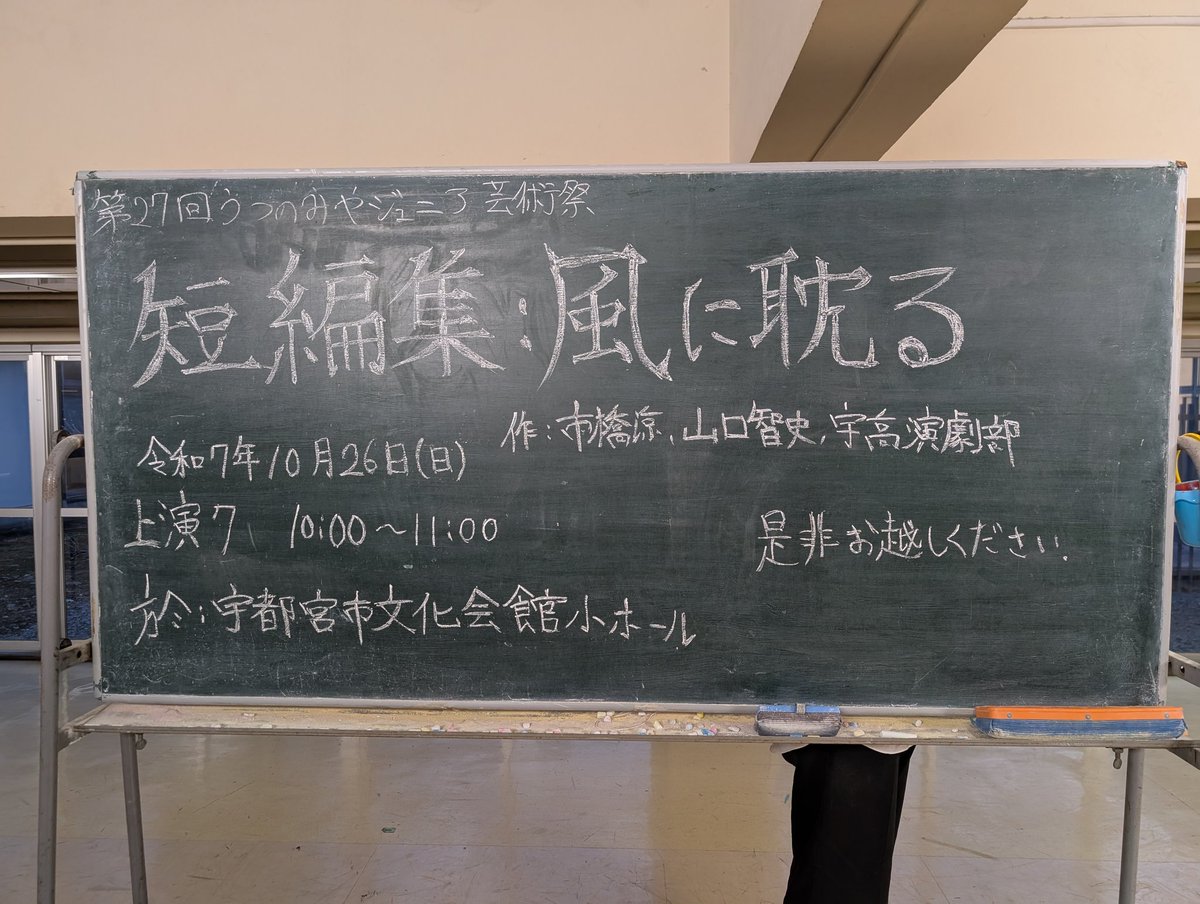 第27回うつのみやジュニア芸術祭
短編集:風に耽る
作:市橋涼、山口智史、宇高演劇部
令和7年10月26日(日)
上演7 10:00〜11:00
是非お越しください。
於:宇都宮市文化会館小ホール